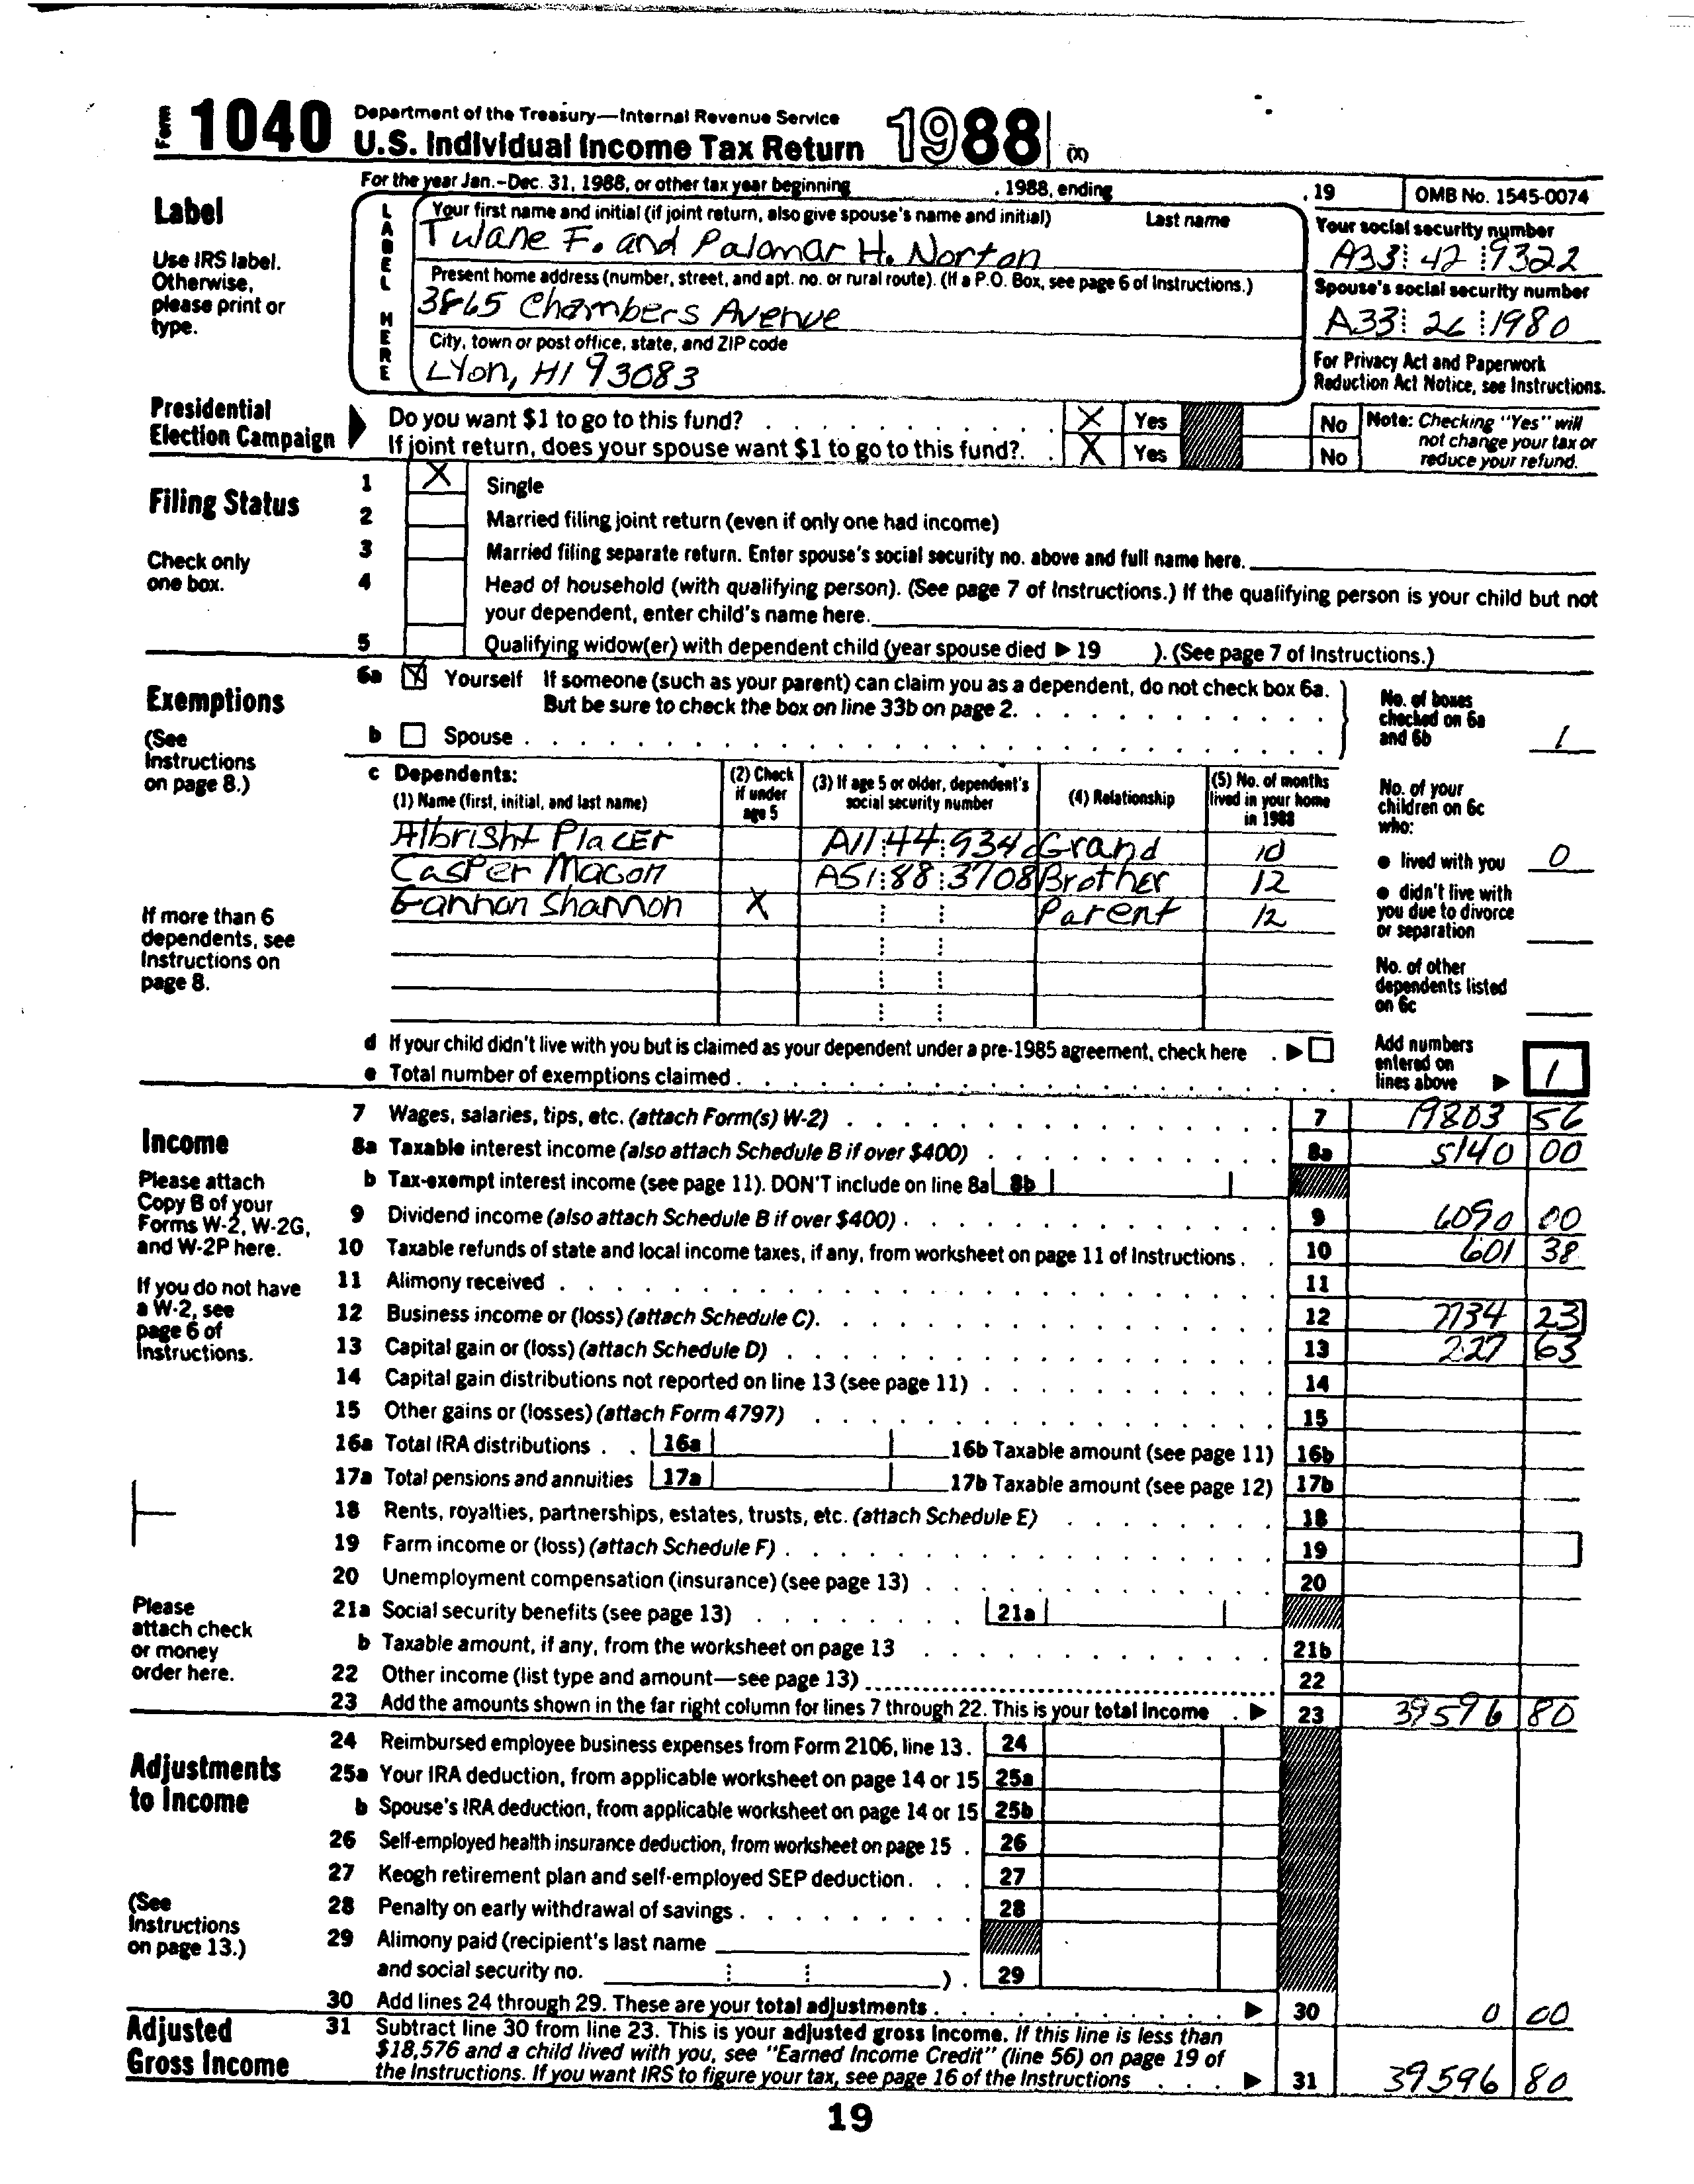 Form 1040 Department of the Treasury—Internal Revenue Service
U.S. Individual Income Tax Return 1988 (X)
For the year Jan.-Dec. 31, 1988, or other tax year beginning , 1988, ending , 19 OMB No. 1545-0074
Label
Use IRS label. Otherwise, please print or type.
LABEL HERE
Your first name and initial (if joint return, also give spouse's name and initial) Last name
Tulane F. and Palomar H. Norton
Your social security number
A33 42 9322
Present home address (number, street, and apt. no. or rural route). (If a P.O. Box, see page 6 of Instructions.)
3865 Chambers Avenue
Spouse's social security number
A33 26 1980
City, town or post office, state, and ZIP code
Lyon, HI 93083
For Privacy Act and Paperwork Reduction Act Notice, see Instructions.
Presidential Election Campaign
Do you want $1 to go to this fund? X Yes No
If joint return, does your spouse want $1 to go to this fund? X Yes No
Note: Checking "Yes" will not change your tax or reduce your refund.
Filing Status
Check only one box.
1 X Single
2 Married filing joint return (even if only one had income)
3 Married filing separate return. Enter spouse's social security no. above and full name here.
4 Head of household (with qualifying person). (See page 7 of Instructions.) If the qualifying person is your child but not
your dependent, enter child's name here.
5 Qualifying widow(er) with dependent child (year spouse died ▶ 19 ). (See page 7 of Instructions.)
Exemptions
(See Instructions on page 8.)
6a X Yourself If someone (such as your parent) can claim you as a dependent, do not check box 6a.
But be sure to check the box on line 33b on page 2.
b Spouse
No. of boxes checked on 6a and 6b 1
c Dependents:
(1) Name (first, initial, and last name) (2) Check if under age 5 (3) If age 5 or older, dependent's social security number (4) Relationship (5) No. of months lived in your home in 1988
Albrisht Placer A11 44 934 Grand 10
Casper Macon A51 88 3708 Brother 12
Gannon Shannon X Parent 12
No. of your children on 6c who:
● lived with you 0
● didn't live with you due to divorce or separation
No. of other dependents listed on 6c
If more than 6 dependents, see Instructions on page 8.
d If your child didn't live with you but is claimed as your dependent under a pre-1985 agreement, check here ▶
e Total number of exemptions claimed
Add numbers entered on lines above ▶ 1
Income
Please attach Copy B of your Forms W-2, W-2G, and W-2P here.
If you do not have a W-2, see page 6 of Instructions.
Please attach check or money order here.
7 Wages, salaries, tips, etc. (attach Form(s) W-2) 7 19803 56
8a Taxable interest income (also attach Schedule B if over $400) 8a 5140 00
b Tax-exempt interest income (see page 11). DON'T include on line 8a 8b
9 Dividend income (also attach Schedule B if over $400) 9 6090 00
10 Taxable refunds of state and local income taxes, if any, from worksheet on page 11 of Instructions 10 601 38
11 Alimony received 11
12 Business income or (loss) (attach Schedule C) 12 7734 23
13 Capital gain or (loss) (attach Schedule D) 13 227 63
14 Capital gain distributions not reported on line 13 (see page 11) 14
15 Other gains or (losses) (attach Form 4797) 15
16a Total IRA distributions 16a 16b Taxable amount (see page 11) 16b
17a Total pensions and annuities 17a 17b Taxable amount (see page 12) 17b
18 Rents, royalties, partnerships, estates, trusts, etc. (attach Schedule E) 18
19 Farm income or (loss) (attach Schedule F) 19
20 Unemployment compensation (insurance) (see page 13) 20
21a Social security benefits (see page 13) 21a
b Taxable amount, if any, from the worksheet on page 13 21b
22 Other income (list type and amount—see page 13) 22
23 Add the amounts shown in the far right column for lines 7 through 22. This is your total income ▶ 23 39596 80
Adjustments to Income
(See Instructions on page 13.)
24 Reimbursed employee business expenses from Form 2106, line 13 24
25a Your IRA deduction, from applicable worksheet on page 14 or 15 25a
b Spouse's IRA deduction, from applicable worksheet on page 14 or 15 25b
26 Self-employed health insurance deduction, from worksheet on page 15 26
27 Keogh retirement plan and self-employed SEP deduction 27
28 Penalty on early withdrawal of savings 28
29 Alimony paid (recipient's last name
and social security no. ) 29
30 Add lines 24 through 29. These are your total adjustments ▶ 30 0 00
Adjusted Gross Income
31 Subtract line 30 from line 23. This is your adjusted gross income. If this line is less than
$18,576 and a child lived with you, see "Earned Income Credit" (line 56) on page 19 of
the Instructions. If you want IRS to figure your tax, see page 16 of the Instructions ▶ 31 39596 80
19